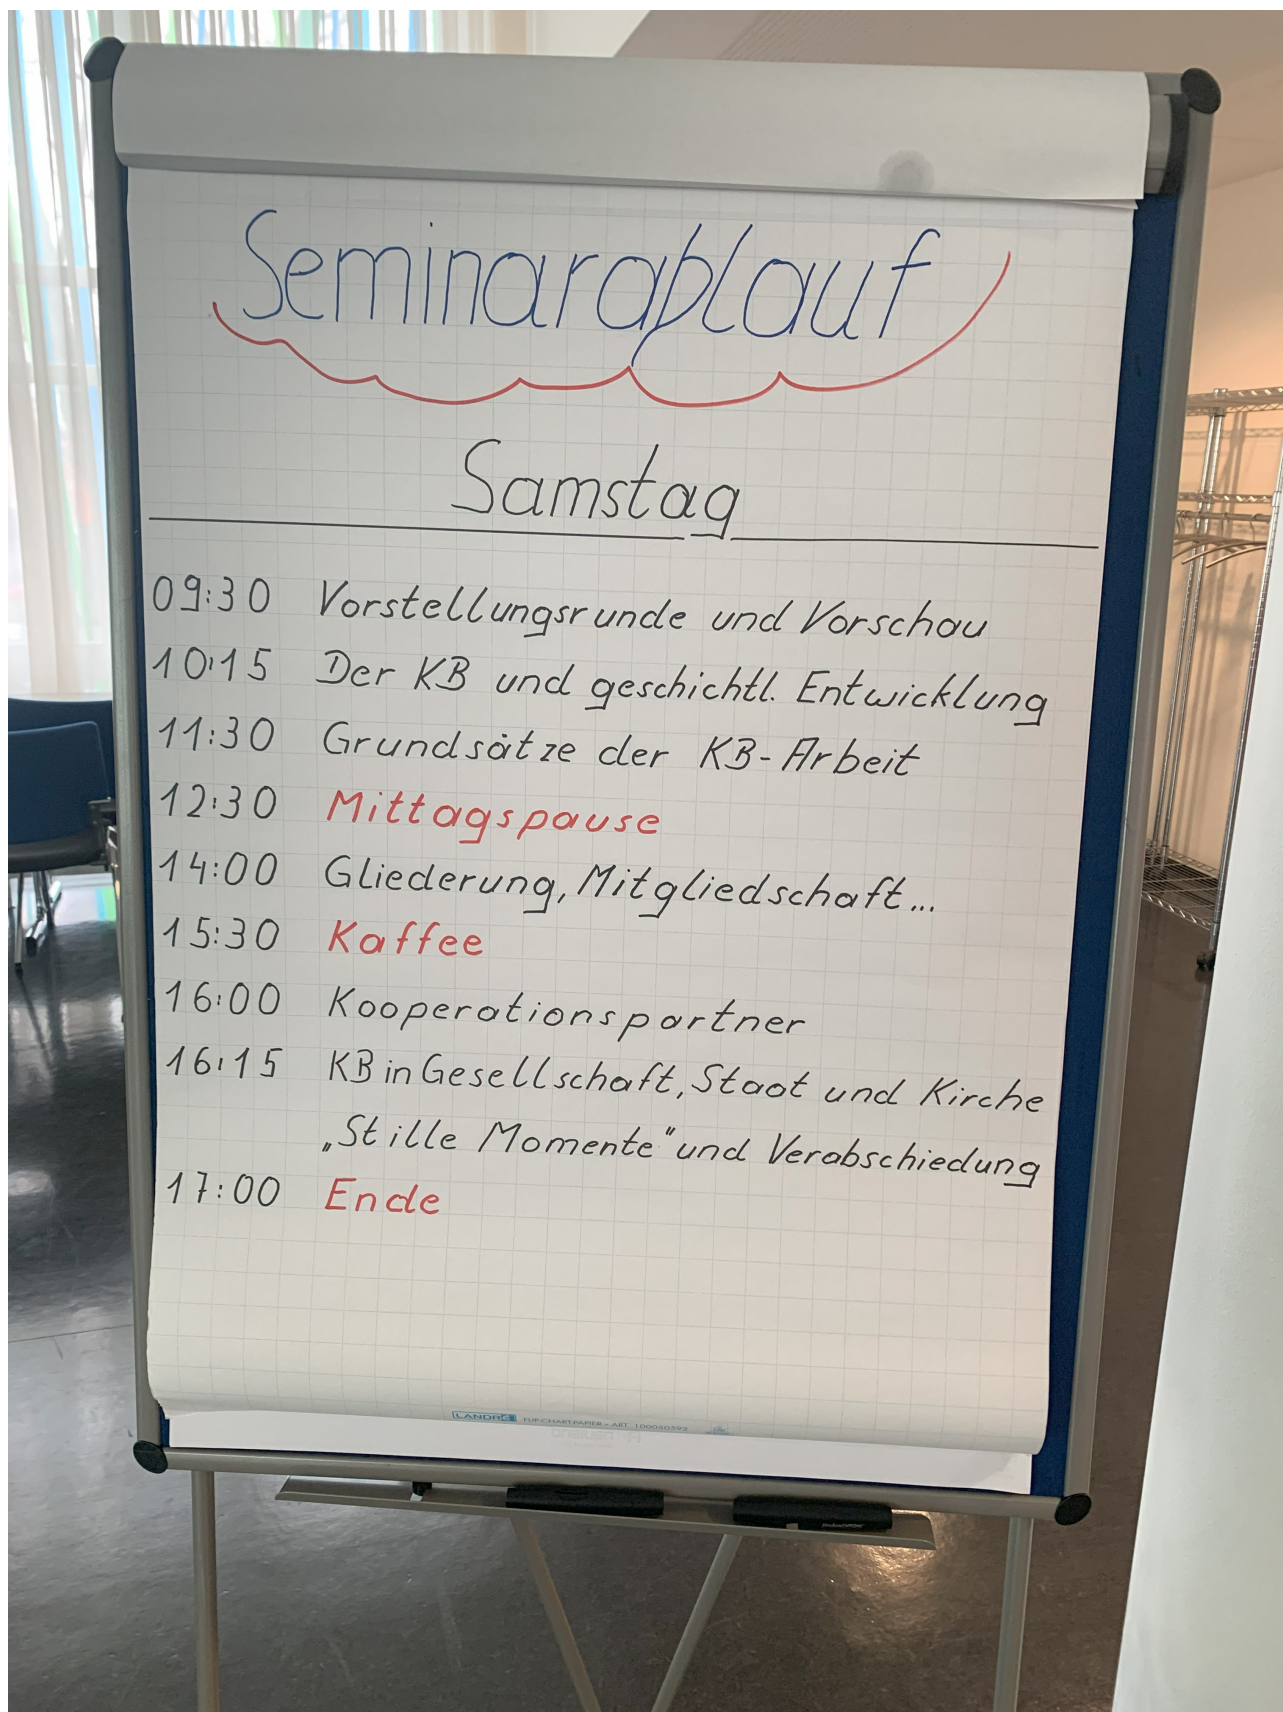 Seminarablauf
Samstag
09:30 Vorstellungsrunde und Vorschau
10:15 Der KB und geschichtl. Entwicklung
11:30 Grundsätze der KB-Arbeit
12:30 Mittagspause
14:00 Gliederung, Mitgliedschaft...
15:30 Kaffee
16:00 Kooperationspartner
16:15 KB in Gesellschaft, Staat und Kirche
„Stille Momente" und Verabschiedung
17:00 Ende
LANDRÉ FLIP-CHART-PAPIER - ART. 100050592